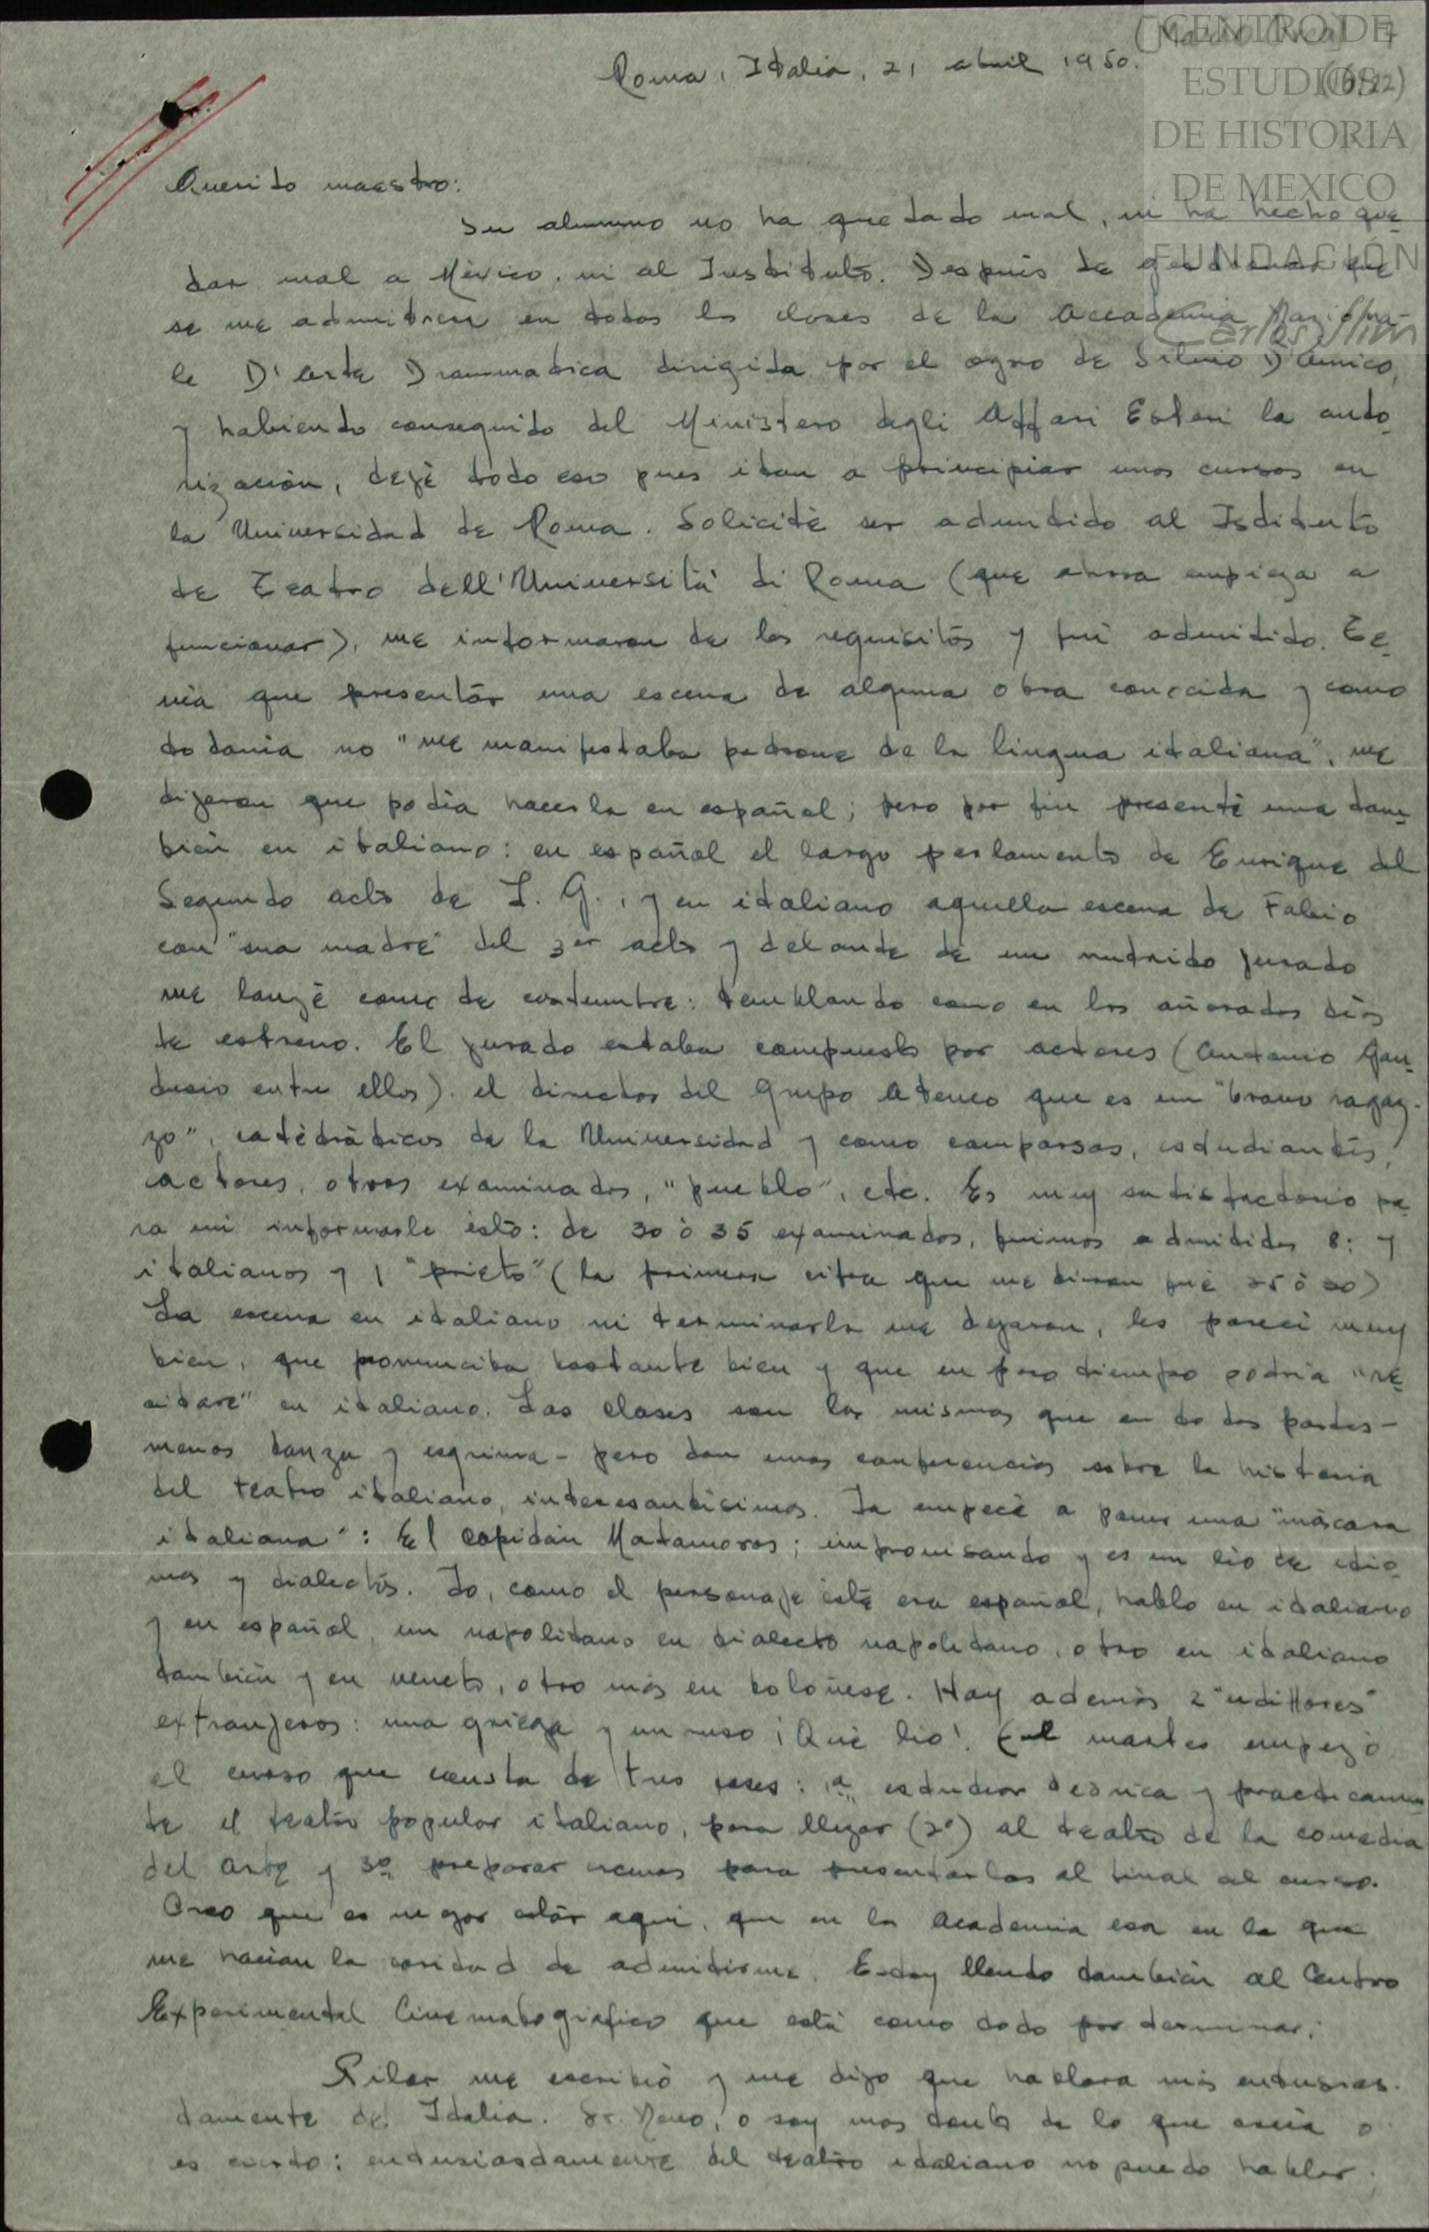 CENTRO DE
ESTUDIOS
DE HISTORIA
DE MEXICO
FUNDACIÓN
Carlos Slim
Roma, Italia, 21 abril 1950.
Querido maestro:
Su alumno no ha quedado mal, ni ha hecho que-
dar mal a México, ni al Instituto. Después de gestionar que
se me admitiera en todas las clases de la Accademia Naziona-
le D'Arte Drammatica dirigida por el ogro de Silvio D'Amico,
y habiendo conseguido del Ministero degli Affari Esteri la auto-
rización, dejé todo eso pues iban a principiar unos cursos en
la Universidad de Roma. Solicité ser admitido al Istituto
de Teatro dell'Università di Roma (que ahora empieza a
funcionar), me informaron de los requisitos y fuí admitido. Te-
nía que presentar una escena de alguna obra conocida y como
todavía no "me manifestaba padrone de la lingua italiana", me
dijeron que podía hacerla en español; pero por fin presenté una tam-
bién en italiano: en español el largo parlamento de Enrique del
Segundo acto de L. G., y en italiano aquella escena de Fabio
con "sua madre" del 3er acto y delante de un nutrido jurado
me lanzé como de costumbre: temblando como en los añorados días
de estreno. El jurado estaba compuesto por actores (Antonio Gan-
dusio entre ellos). el director del Grupo Ateneo que es un "bravo ragaz-
zo", catedráticos de la Universidad y como comparsas, estudiantes,
actores, otros examinados, "pueblo", etc. Es muy satisfactorio pa-
ra mí informarle ésto: de 30 ó 35 examinados, fuimos admitidos 8: 7
italianos y 1 "prieto" (la primera cifra que me dieron fué 25 ó 20)
La escena en italiano ni terminarla me dejaron, les parecí muy
bien, que pronunciba bastante bien y que en poco tiempo podría "re-
citare" en italiano. Las clases son las mismas que en todas partes -
menos danza y esgrima - pero dan unas conferencias sobre la historia
del teatro italiano, interesantísimas. Ya empecé a poner una "máscara
italiana": El capitán Matamoros; improvisando y es un lío de idio-
mas y dialectos. Yo, como el personaje éste era español, hablo en italiano
y en español, un napolitano en dialecto napoletano, otro en italiano
también y en veneto, otro más en boloñese. Hay además 2 "uditores"
extranjeros: una griega y un ruso ¡Qué lío! El martes empezó
el curso que consta de tres fases: 1a estudiar teórica y practicamen-
te el teatro popular italiano, para llegar (2o) al teatro de la comedia
del arte y 3o preparar escenas para presentarlas al final del curso.
Creo que es mejor estar aquí, que en la Academia esa en la que
me hacían la caridad de admitirme. Estoy llendo también al Centro
Experimental Cinematografico que está como todo por terminar.
Pilar me escribió y me dijo que hablara más entusias-
tamente de Italia. Sr. Novo, o soy mas tonto de lo que creía o
es cierto: entusiastamente del teatro italiano no puedo hablar,